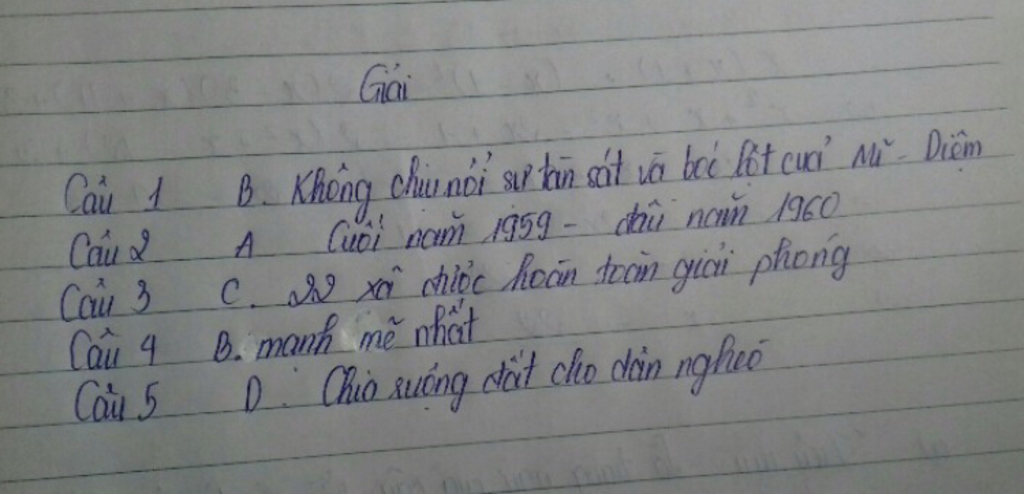 Giải
Câu 1 B. Không chịu nổi sự tàn sát và bóc lột của Mĩ - Diệm
Câu 2 A Cuối năm 1959 - đầu năm 1960
Câu 3 C. 22 xã được hoàn toàn giải phóng
Câu 4 B. mạnh mẽ nhất
Câu 5 D. Chia ruộng đất cho dân nghèo